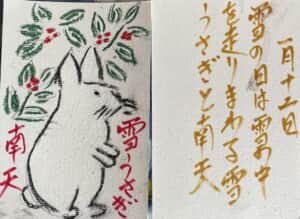 雪うさぎ
南天
一月十二日
雪の日は雪の中
を走りまわる雪
うさぎと南天